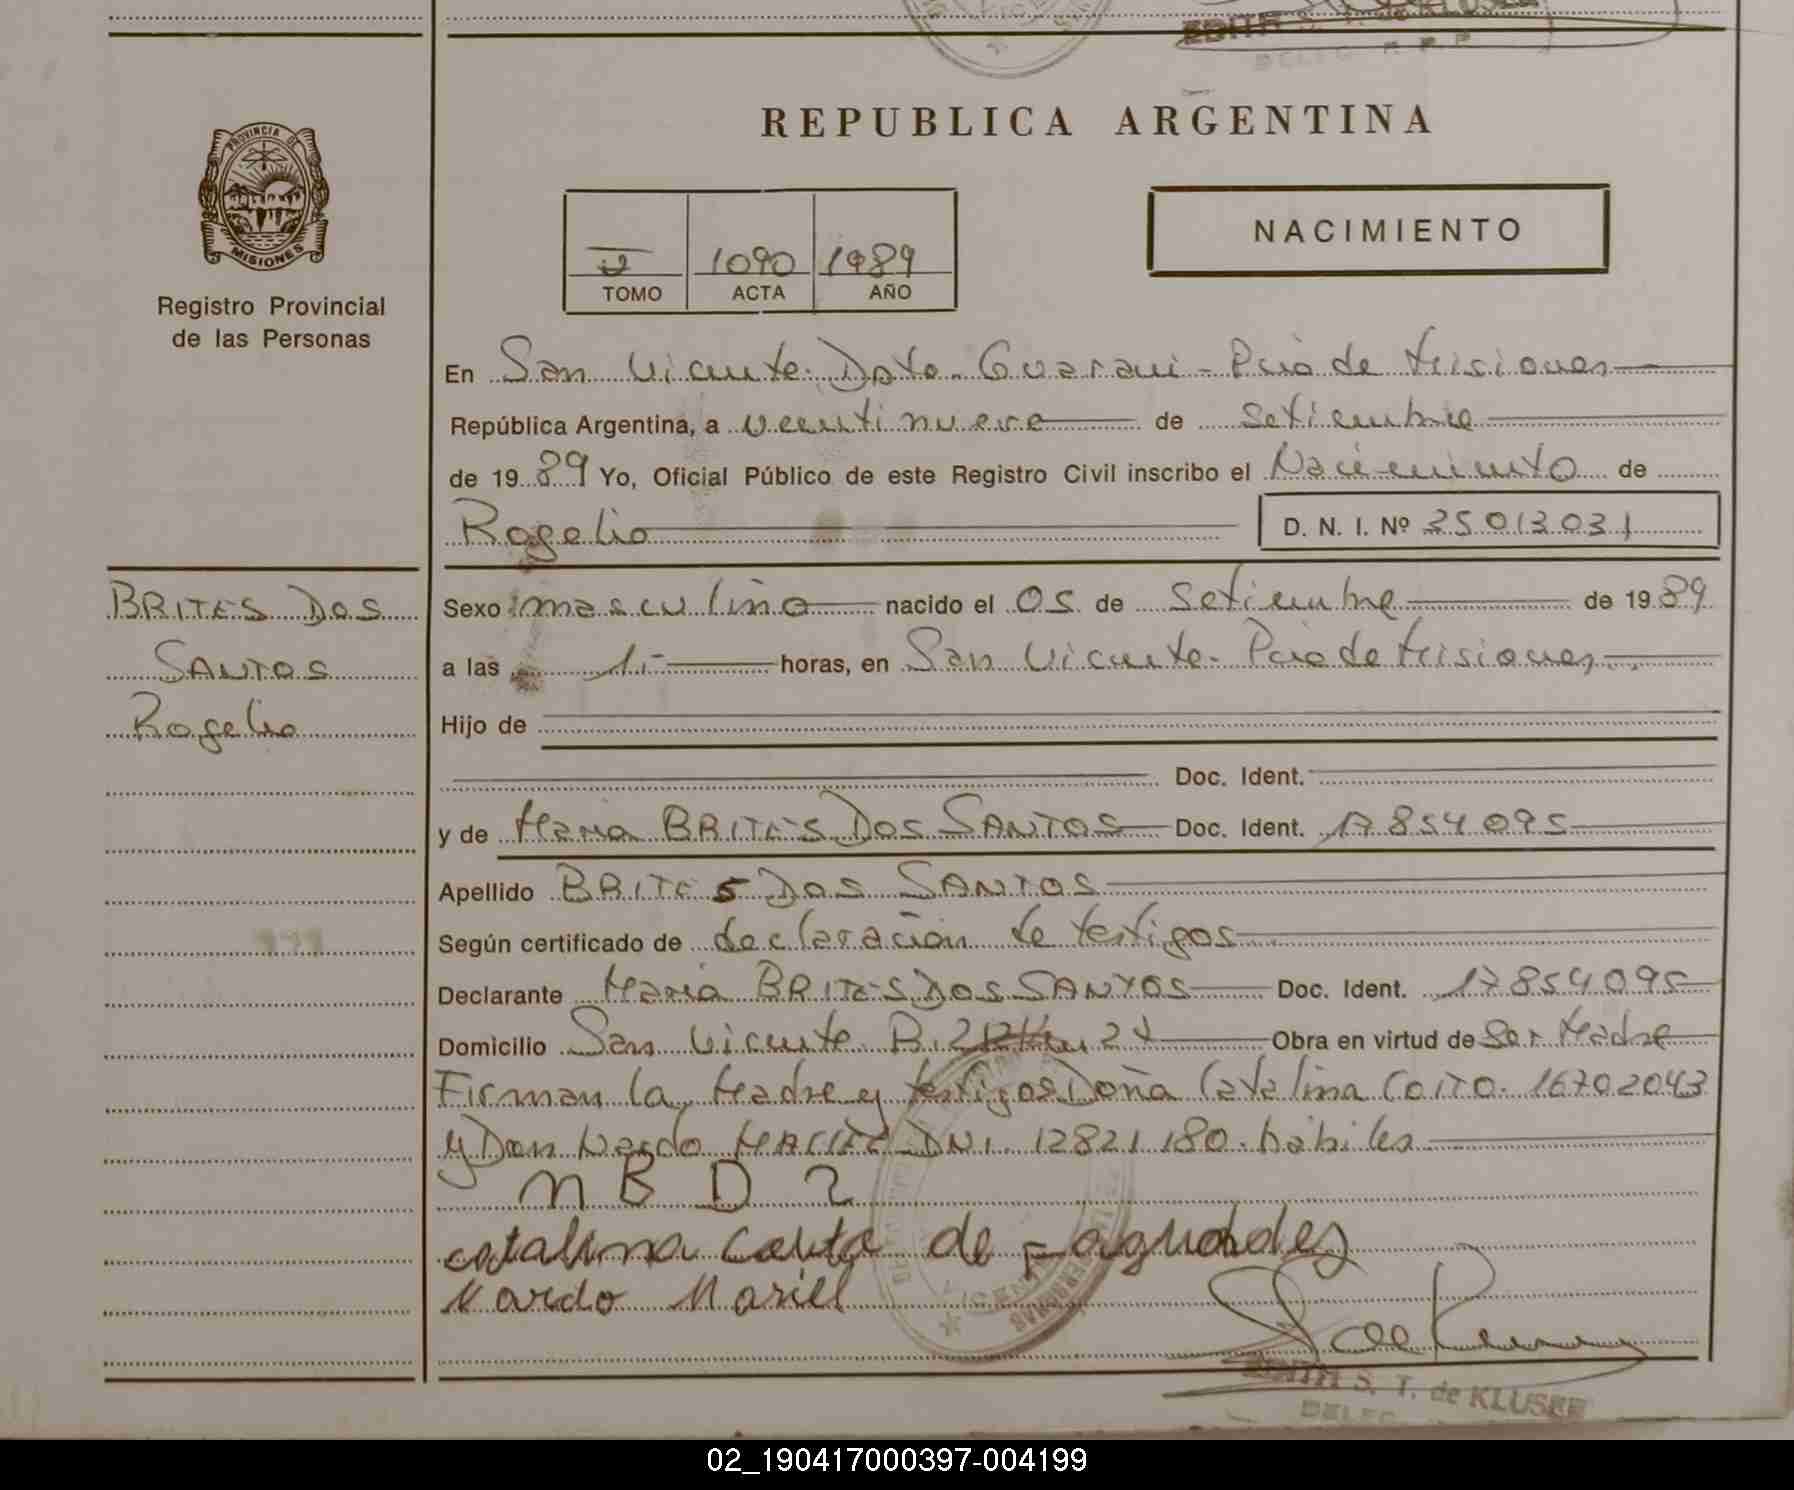 EDITH S. T. de KLUSER
DELEG. R. P. P.
REPUBLICA ARGENTINA
PROVINCIA DE
MISIONES
Registro Provincial
de las Personas
1090 1989
TOMO ACTA AÑO
NACIMIENTO
En San Vicente. Dpto. Guarani - Pcia de Misiones
República Argentina, a veinti nueve de setiembre
de 1989 Yo, Oficial Público de este Registro Civil inscribo el Nacimiento de
Rogelio D. N. I. Nº 35013031
BRITES DOS
SANTOS
Rogelio
Sexo masculino nacido el 05 de Setiembre de 1989
a las 1.- horas, en San Vicente. Pcia de Misiones
Hijo de
Doc. Ident.
y de Maria BRITES DOS SANTOS Doc. Ident. 17854095
Apellido BRITES DOS SANTOS
Según certificado de declaración de testigos
Declarante Maria BRITES DOS SANTOS Doc. Ident. 17854095
Domicilio San Vicente Obra en virtud de Ser Madre
Firman la Madre y testigos Doña Catalina COITO. 16702043
y Don Nardo DNI. 12821180. habiles
M B D
catalina de
Nardo Mariel
EDITH S. T. de KLUSER
DELEG.
02_190417000397-004199